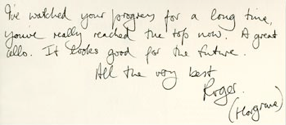 I've watched your progress for a long time,
youve really reached the top now. A great
cello. It looks good for the future.
All the very best
Roger.
(Hargrave)